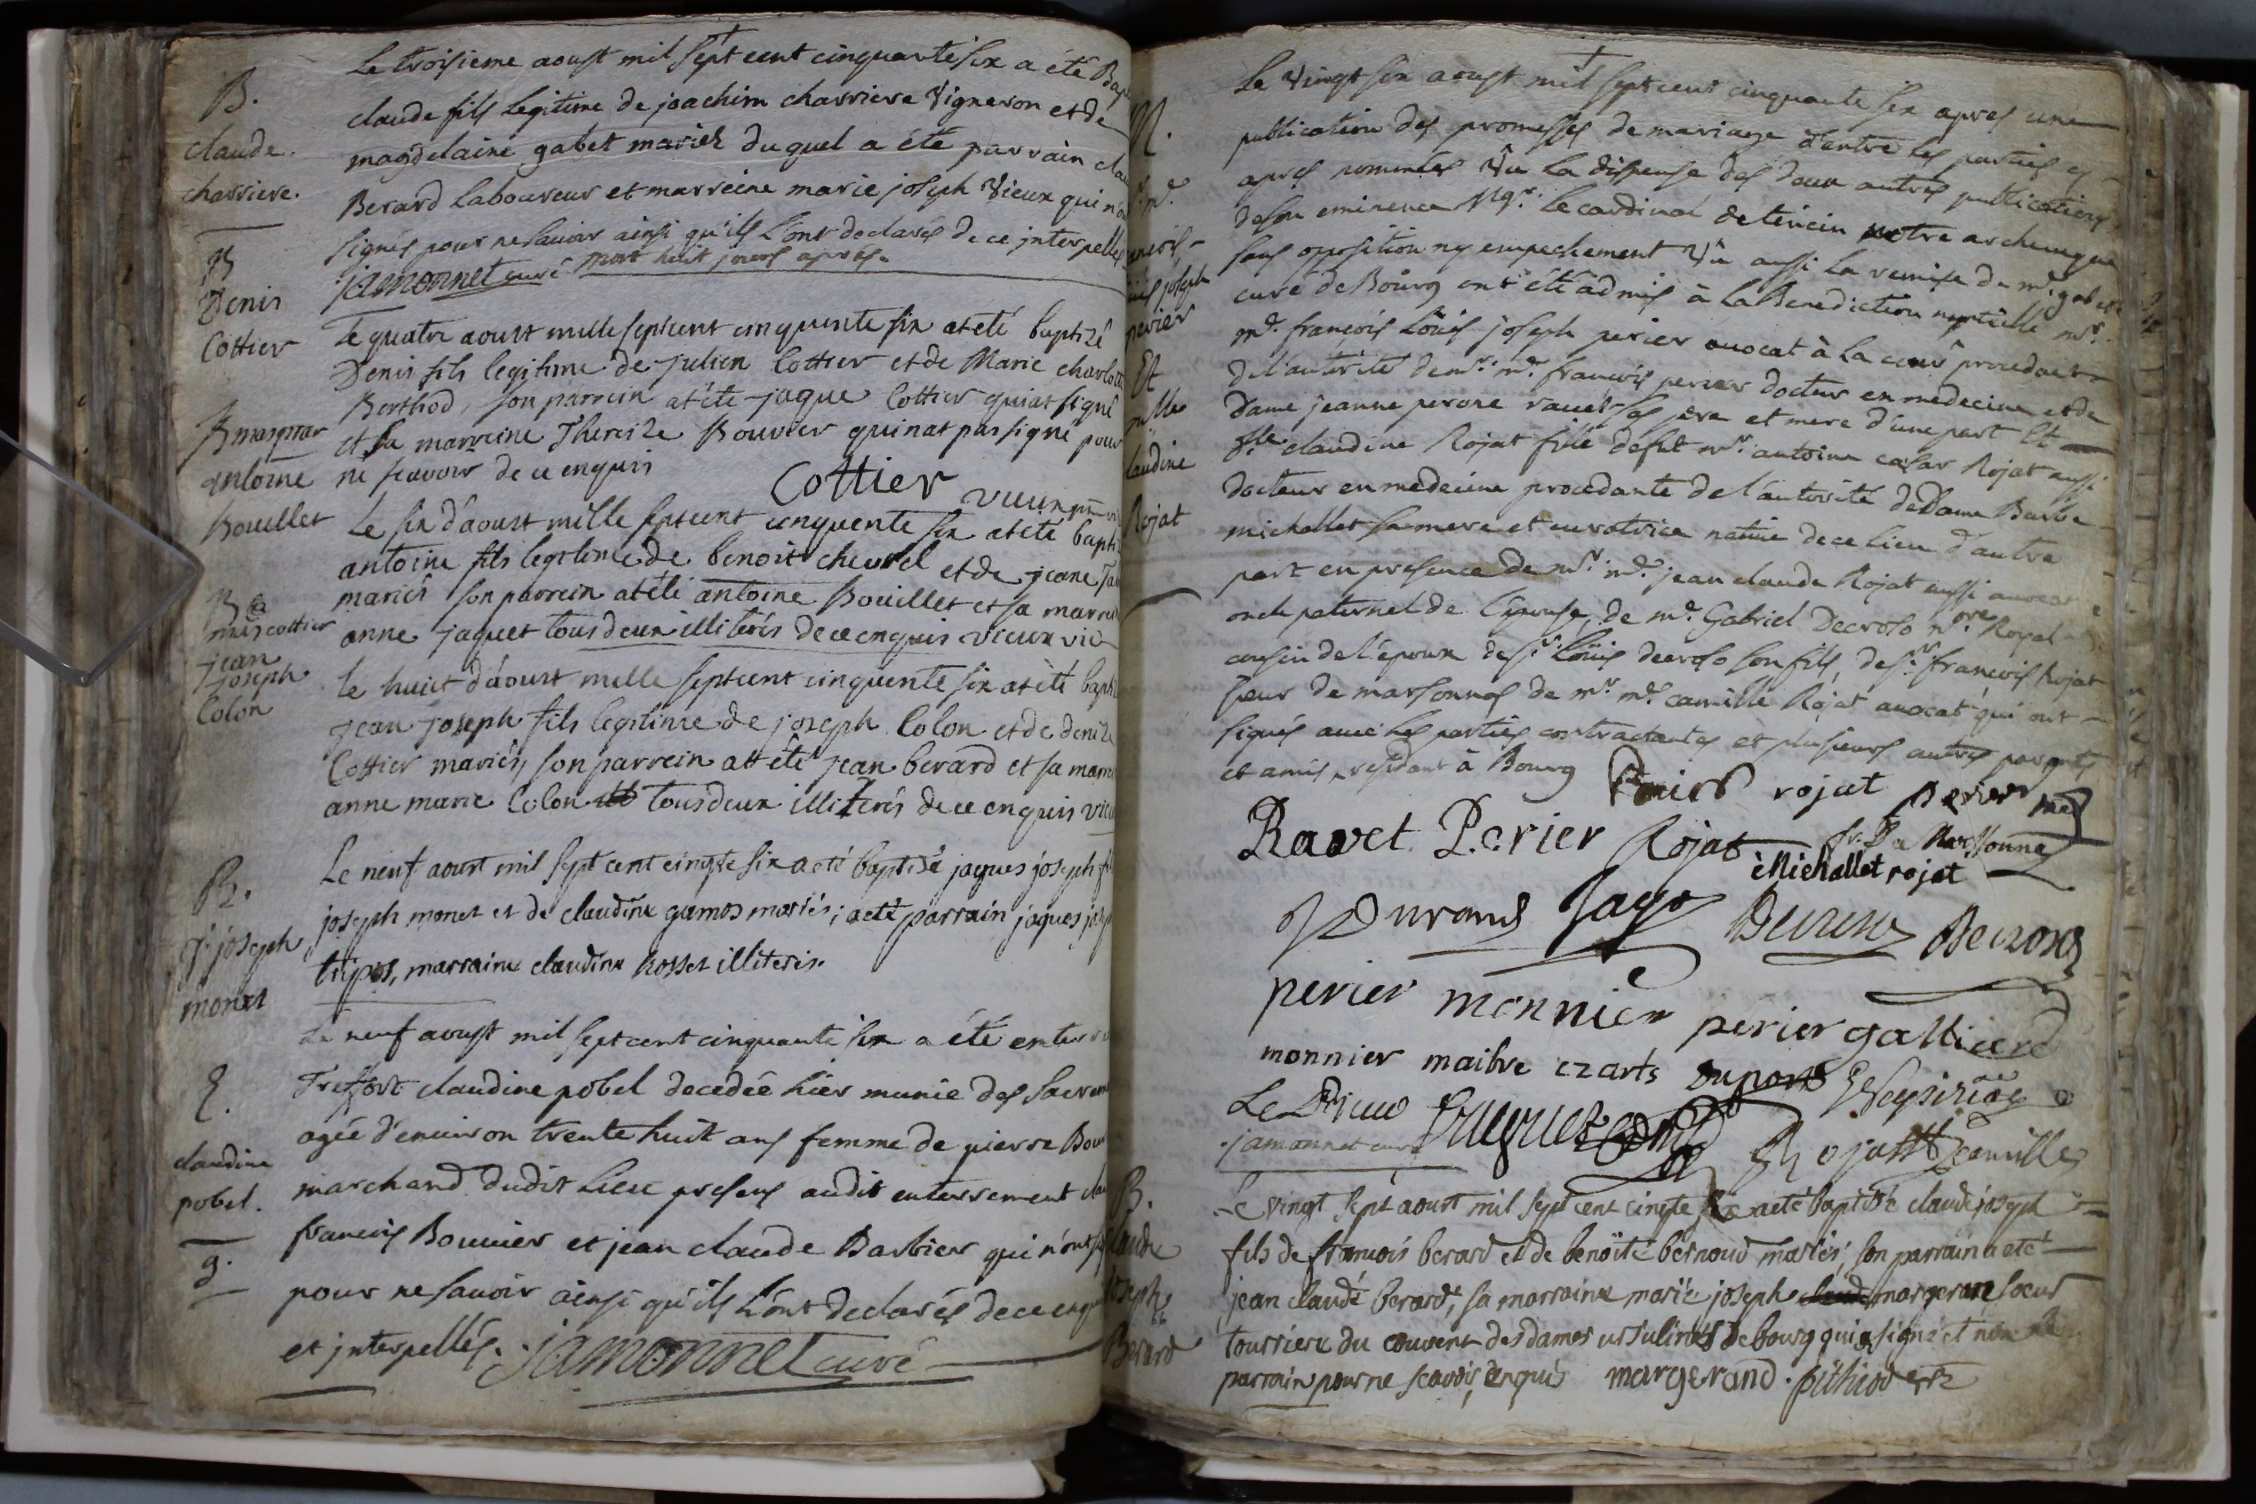 B.
claude
charriere.
Le troisieme aoust mil sept cent cinquante six a été
claude fils legitime de joachim charriere vigneron et de
magdelaine gabet mariés duquel a été parrain
Berard laboureur et marreine marie joseph vieux qui
signés pour ne savoir ainsi qu'ils l'ont declarés de ce interpellés
jamonnet curé mort huit jours apres.
B
Denis
Cottier
Le quatre aoust mille septcent cinquente six at eté baptizé
Denis fils legitime de julien Cottier et de Marie charlotte
Berthod, son parrein at été jaque Cottier qui at signé
et sa marreine Therese Bouvier qui nat pas signé pour
ne scavoir de ce enquis
Cottier vieux
B
antoine
Bouillet
Le six d'aoust mille septcent cinquente six at eté
antoine fils legitime de benoit chevrel et de jeane
mariés son parrein at été antoine Bouillet et sa
anne jaquet tous deux illiterés de ce enquis vieux vic
B
jean
joseph
Colon
Le huict d'aoust mille septcent cinquente six at été
jean joseph fils legitime de joseph Colon et de denize
Cottier mariés, son parrein at été jean berard et sa
anne marie Colon tous deux illiterés de ce enquis
B.
joseph
monet
Le neuf aoust mil sept cent cinqte six a eté baptisé jaques joseph
joseph monet et de claudine gamos mariés; a eté parrain jaques
tripos, marraine claudine Rosset illiteris.
E.
claudine
pobel.
g.
Le neuf aoust mil sept cent cinquante six a été
Treffort claudine pobel decedée hier munie des
agée d'environ trente huit ans femme de pierre
marchand dudit lieu presens audit enterrement
francois Bouvier et jean claude Barbier qui n'ont
pour ne savoir ainsi qu'ils l'ont declarés de ce
et interpellés. jamonnet curé
M.
joseph
perier
Et
Rojat
Le vingt six aoust mil sept cent cinquante six apres une
publication des promesses de mariage d'entre les parties cy
apres nommées vu la dispense des deux autres publications
de son eminence Mgr. le cardinal de tencin notre archeveque
sans opposition ny empechement vû aussi la remise de mr. gabet
curé de Bourg ont été admis à la Benediction nuptialle mr.
me. françois loüis joseph perier avocat à la cour procedant
de l'autorité de mr. me. francois perier docteur en medecine et de
Dame jeanne perone ravet ses pere et mere d'une part Et
dlle claudine Rojat fille de fut mr. antoine cæsar Rojat aussi
docteur en medecine procedante de l'autorité de Dame Barbe
michallet sa mere et curatrice native de ce lieu d'autre
part en presence de mr. me. jean claude Rojat aussi avocat
oncle paternel de l'epouse, de me. Gabriel Decroso nre. Royal
cousin de l'époux de sr. loüis decroso son fils, de sr. francois Rojat
sieur de marsonnas de mr. me. camille Rojat avocat qui ont
signés avec les parties contractantes et plusieurs autres parents
et amis residant à Bourg Perier rojat Perier
Ravet Perier Rojat
Michallet rojat
Durand
perier monnier perier galliard
monnier maitre ez arts dupont
jamonnet curé
B.
joseph
Berard
Le vingt sept aoust mil sept cent cinqte six a eté baptisé claude joseph
fils de francois berard et de benoité bernoud mariés, son parrain a eté
jean claude berard, sa marraine marie joseph margerand soeur
tourriere du couvent des dames ursulines de bourg qui a signé et non le
parrain pour ne scavoir, enquis margerand.